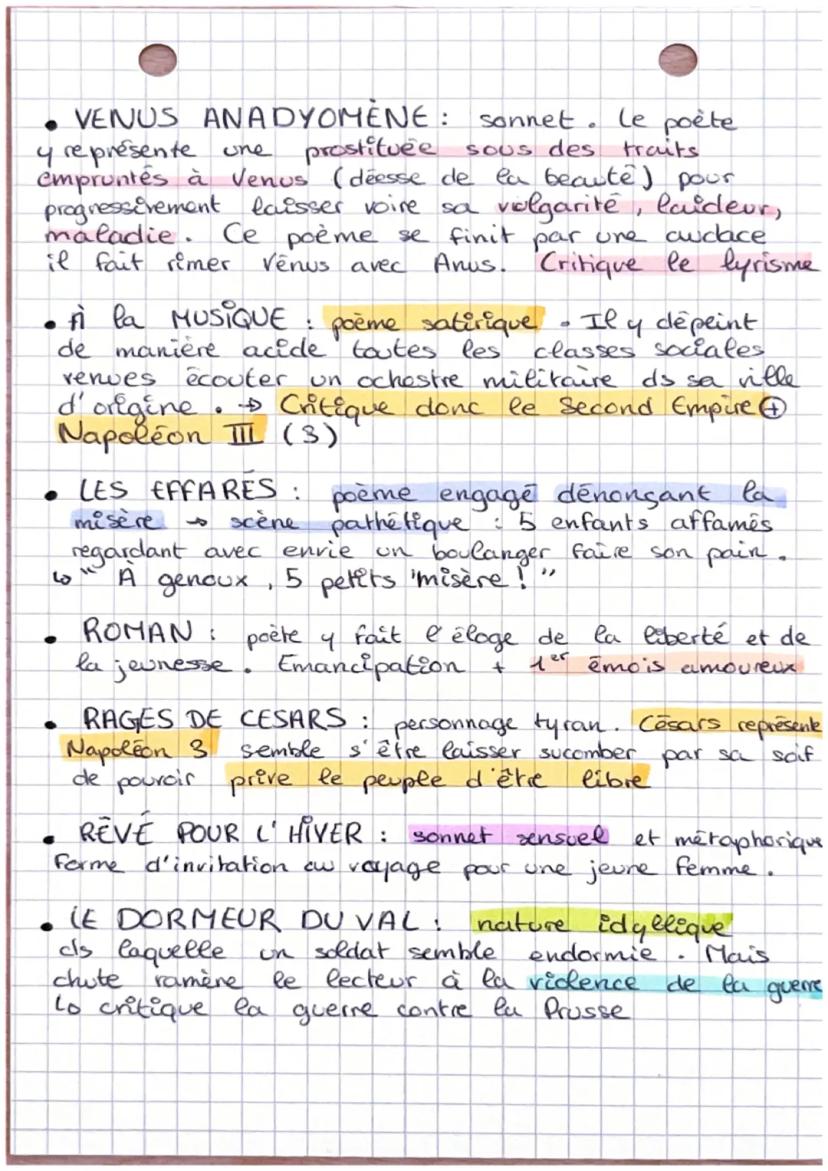 • VENUS ANADYOMÈNE : sonnet. Le poète
y représente une prostituée sous des traits
empruntés à Venus (déesse de la beauté) pour
progressivement laisser voire sa vulgarité, laideur,
maladie. Ce poème se finit par une audace
il fait rimer Vénus avec Anus. Critique le lyrisme
• À la MUSIQUE : poème satirique. Il y dépeint
de manière acide toutes les classes sociales
venues écouter un ochestre militaire ds sa ville
d'origine. → Critique donc le Second Empire ⊕
Napoléon III (3)
• LES EFFARÉS : poème engagé dénonçant la
misère → scène pathétique : 5 enfants affamés
regardant avec envie un boulanger faire son pain.
↳ " À genoux, 5 petits 'misère ! "
• ROMAN : poète y fait l'éloge de la liberté et de
la jeunesse. Émancipation + 1er émois amoureux
• RAGES DE CESARS : personnage tyran. Césars représente
Napoléon 3 semble s'être laisser sucomber par sa soif
de pouvoir prive le peuple d'être libre
• RÊVÉ POUR L'HIVER : sonnet sensuel et métaphorique
forme d'invitation au voyage pour une jeune femme.
• LE DORMEUR DU VAL : nature idyllique
ds laquelle un soldat semble endormie. Mais
chute ramène le lecteur à la violence de la guerre
↳ critique la guerre contre la Prusse